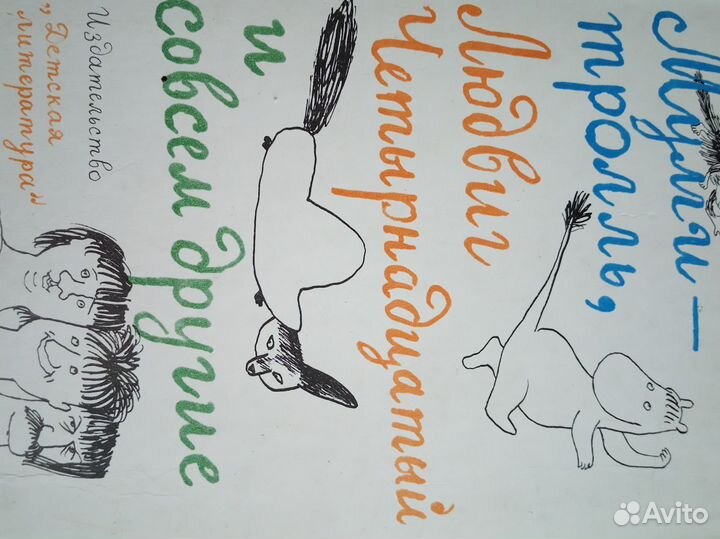 Муми-
тролль,
Людвиг
Четырнадцатый
и
совсем другие
Издательство
„Детская
литература"
Avito